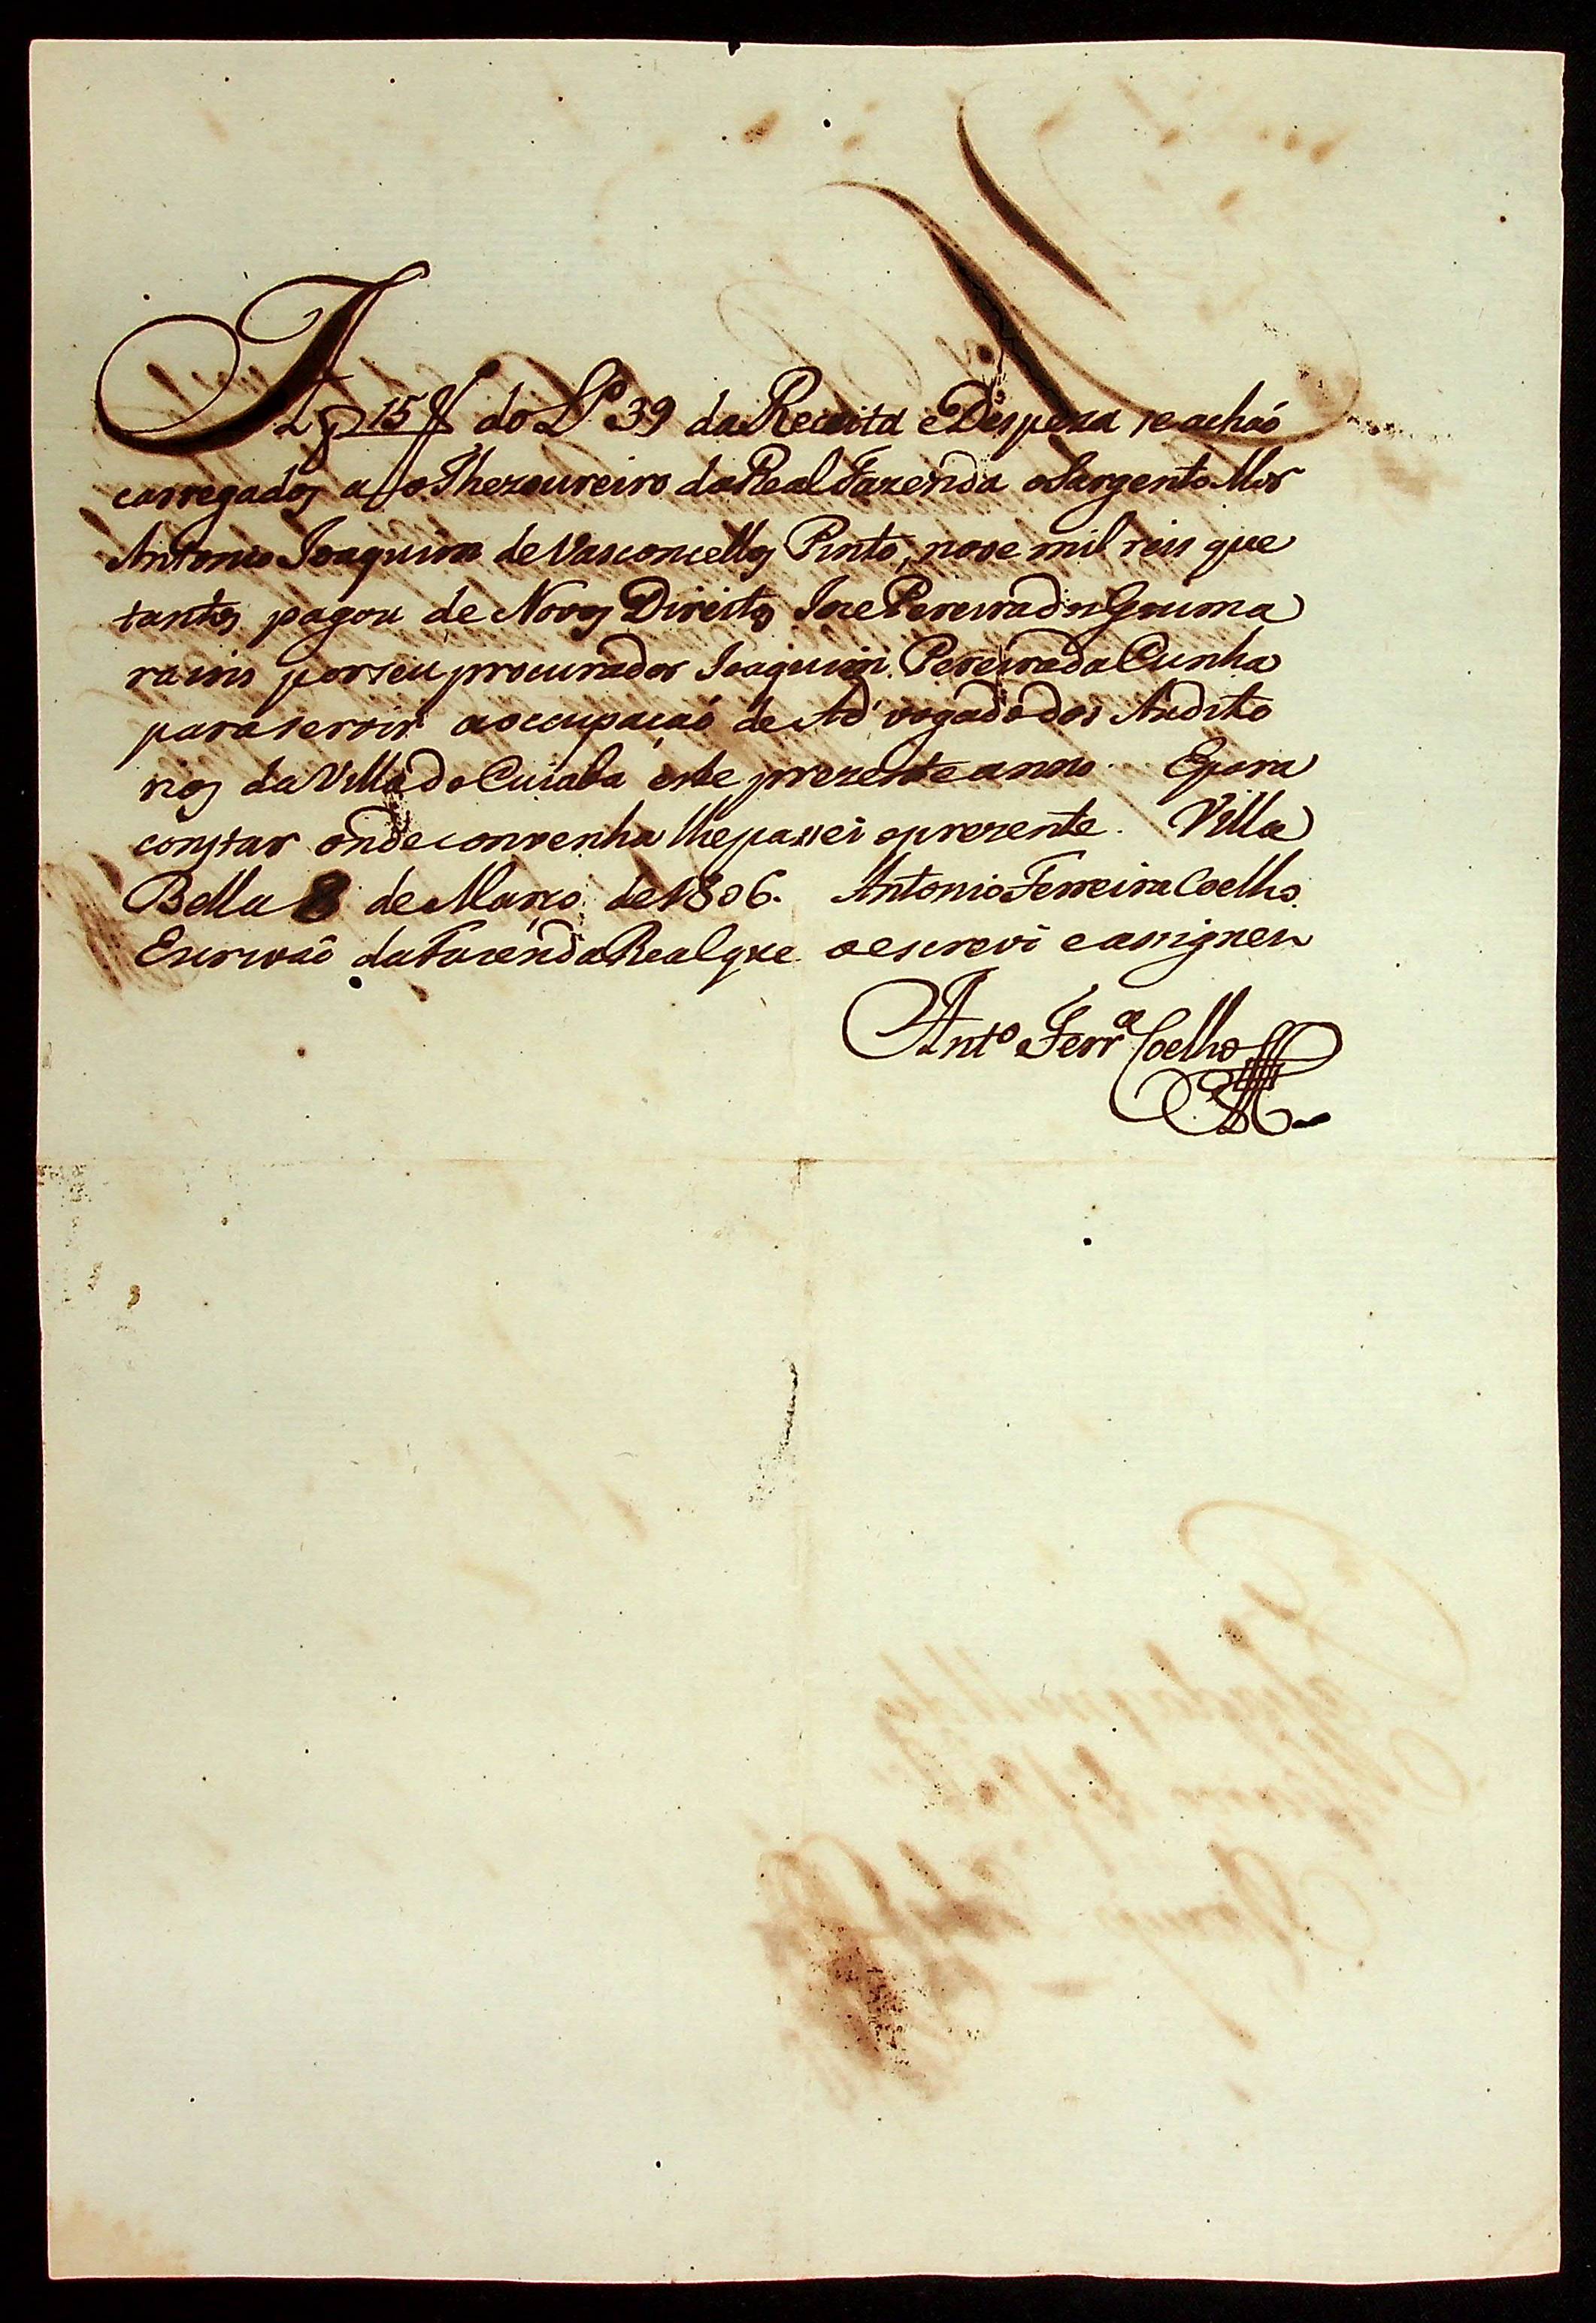 A f 15 V do L.º 39 da Receita e Despeza se achaõ
carregados ao Thezoureiro da Real Fazenda o Sargento Mor
Antonio Joaquim de Vasconcellos Pinto, nove mil reis que
tantos pagou de Novos Direitos Jose Pereira dos Guima
rains por seu procurador Joaquim Pereira da Cunha
para servir a occupaçaõ de Advogado dos Audito
rios da Villa do Cuiaba este prezente anno. E para
constar onde convenha lhe passei o prezente. Villa
Bella 8 de Março de 1806. Antonio Ferreira Coelho
Escrivaõ da Fazenda Real que o escrevi e assignei
Antº Ferrª Coelho